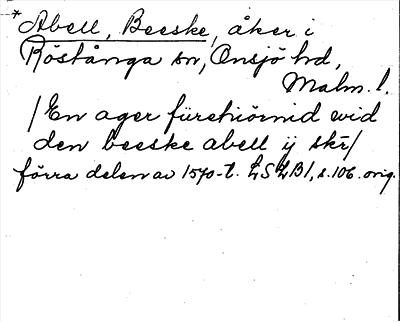 *Abell, Beeske, åker i
Röstånga sn, Onsjö hd,
Malm. l.
/En ager fürehiörnid wid
den beeske abell ij skr/
förra delen av 1570-t. LSLB1, s. 106. orig.